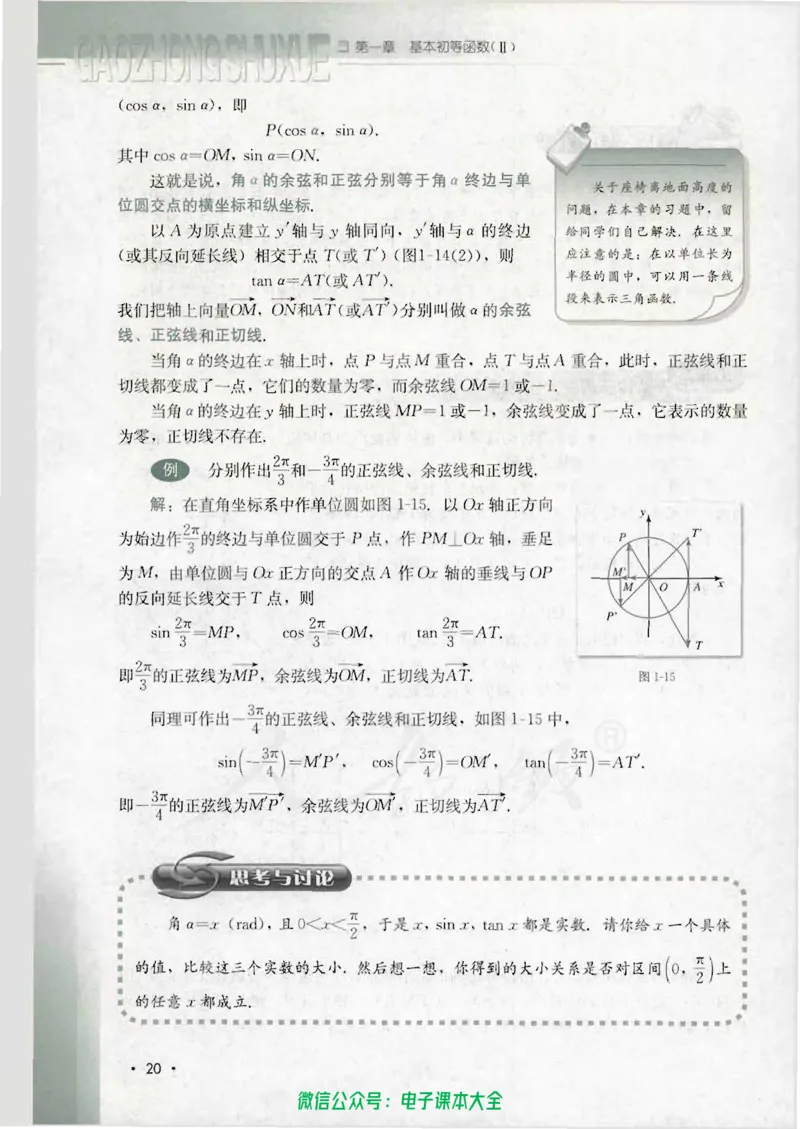 GAOZHONGSHUXUE
第一章 基本初等函数(Ⅱ)
(cos α, sin α), 即
P(cos α, sin α).
其中 cos α=OM, sin α=ON.
这就是说, 角 α 的余弦和正弦分别等于角 α 终边与单
位圆交点的横坐标和纵坐标.
以 A 为原点建立 y′轴与 y 轴同向, y′轴与 α 的终边
(或其反向延长线) 相交于点 T(或 T′) (图1-14(2)), 则
tan α=AT(或 AT′).
我们把轴上向量$\overrightarrow{OM}$, $\overrightarrow{ON}$和$\overrightarrow{AT}$(或$\overrightarrow{AT′}$)分别叫做 α 的余弦
线、正弦线和正切线.
关于座椅离地面高度的
问题, 在本章的习题中, 留
给同学们自己解决. 在这里
应注意的是: 在以单位长为
半径的圆中, 可以用一条线
段来表示三角函数.
当角 α 的终边在 x 轴上时, 点 P 与点 M 重合, 点 T 与点 A 重合, 此时, 正弦线和正
切线都变成了一点, 它们的数量为零, 而余弦线 OM=1 或−1.
当角 α 的终边在 y 轴上时, 正弦线 MP=1 或−1, 余弦线变成了一点, 它表示的数量
为零, 正切线不存在.
例 分别作出$\frac{2π}{3}$和$-\frac{3π}{4}$的正弦线、余弦线和正切线.
解: 在直角坐标系中作单位圆如图 1-15. 以 Ox 轴正方向
为始边作$\frac{2π}{3}$的终边与单位圆交于 P 点, 作 PM⊥Ox 轴, 垂足
为 M, 由单位圆与 Ox 正方向的交点 A 作 Ox 轴的垂线与 OP
的反向延长线交于 T 点, 则
sin $\frac{2π}{3}$=MP, cos $\frac{2π}{3}$=OM, tan $\frac{2π}{3}$=AT.
即$\frac{2π}{3}$的正弦线为$\overrightarrow{MP}$, 余弦线为$\overrightarrow{OM}$, 正切线为$\overrightarrow{AT}$.
y
P
T′
M′
M
O
A
x
P′
T
图 1-15
同理可作出$-\frac{3π}{4}$的正弦线、余弦线和正切线, 如图 1-15 中,
sin($-\frac{3π}{4}$)=M′P′, cos($-\frac{3π}{4}$)=OM′, tan($-\frac{3π}{4}$)=AT′.
即$-\frac{3π}{4}$的正弦线为$\overrightarrow{M′P′}$, 余弦线为$\overrightarrow{OM′}$, 正切线为$\overrightarrow{AT′}$.
思考与讨论
角 α=x (rad), 且 0<x<$\frac{π}{2}$, 于是 x, sin x, tan x 都是实数. 请你给 x 一个具体
的值, 比较这三个实数的大小. 然后想一想, 你得到的大小关系是否对区间(0, $\frac{π}{2}$)上
的任意 x 都成立.
· 20 ·
微信公众号：电子课本大全